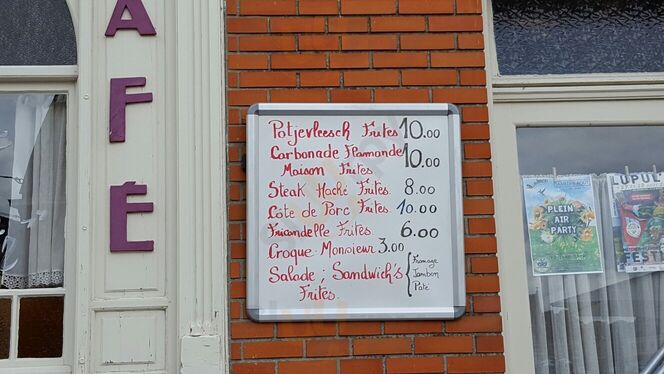 CAFÉ
Potjevleesch Frites 10.00
Carbonade Flamande 10.00
Maison Frites
Steak Haché Frites. 8.00
Côte de Porc Frites. 10.00
Fricandelle Frites. 6.00
Croque-Monsieur 3.00
Salade: Sandwich's { Fromage
Jambon
Paté
Frites.
PLEIN
AIR
PARTY
LUPUL
FEST